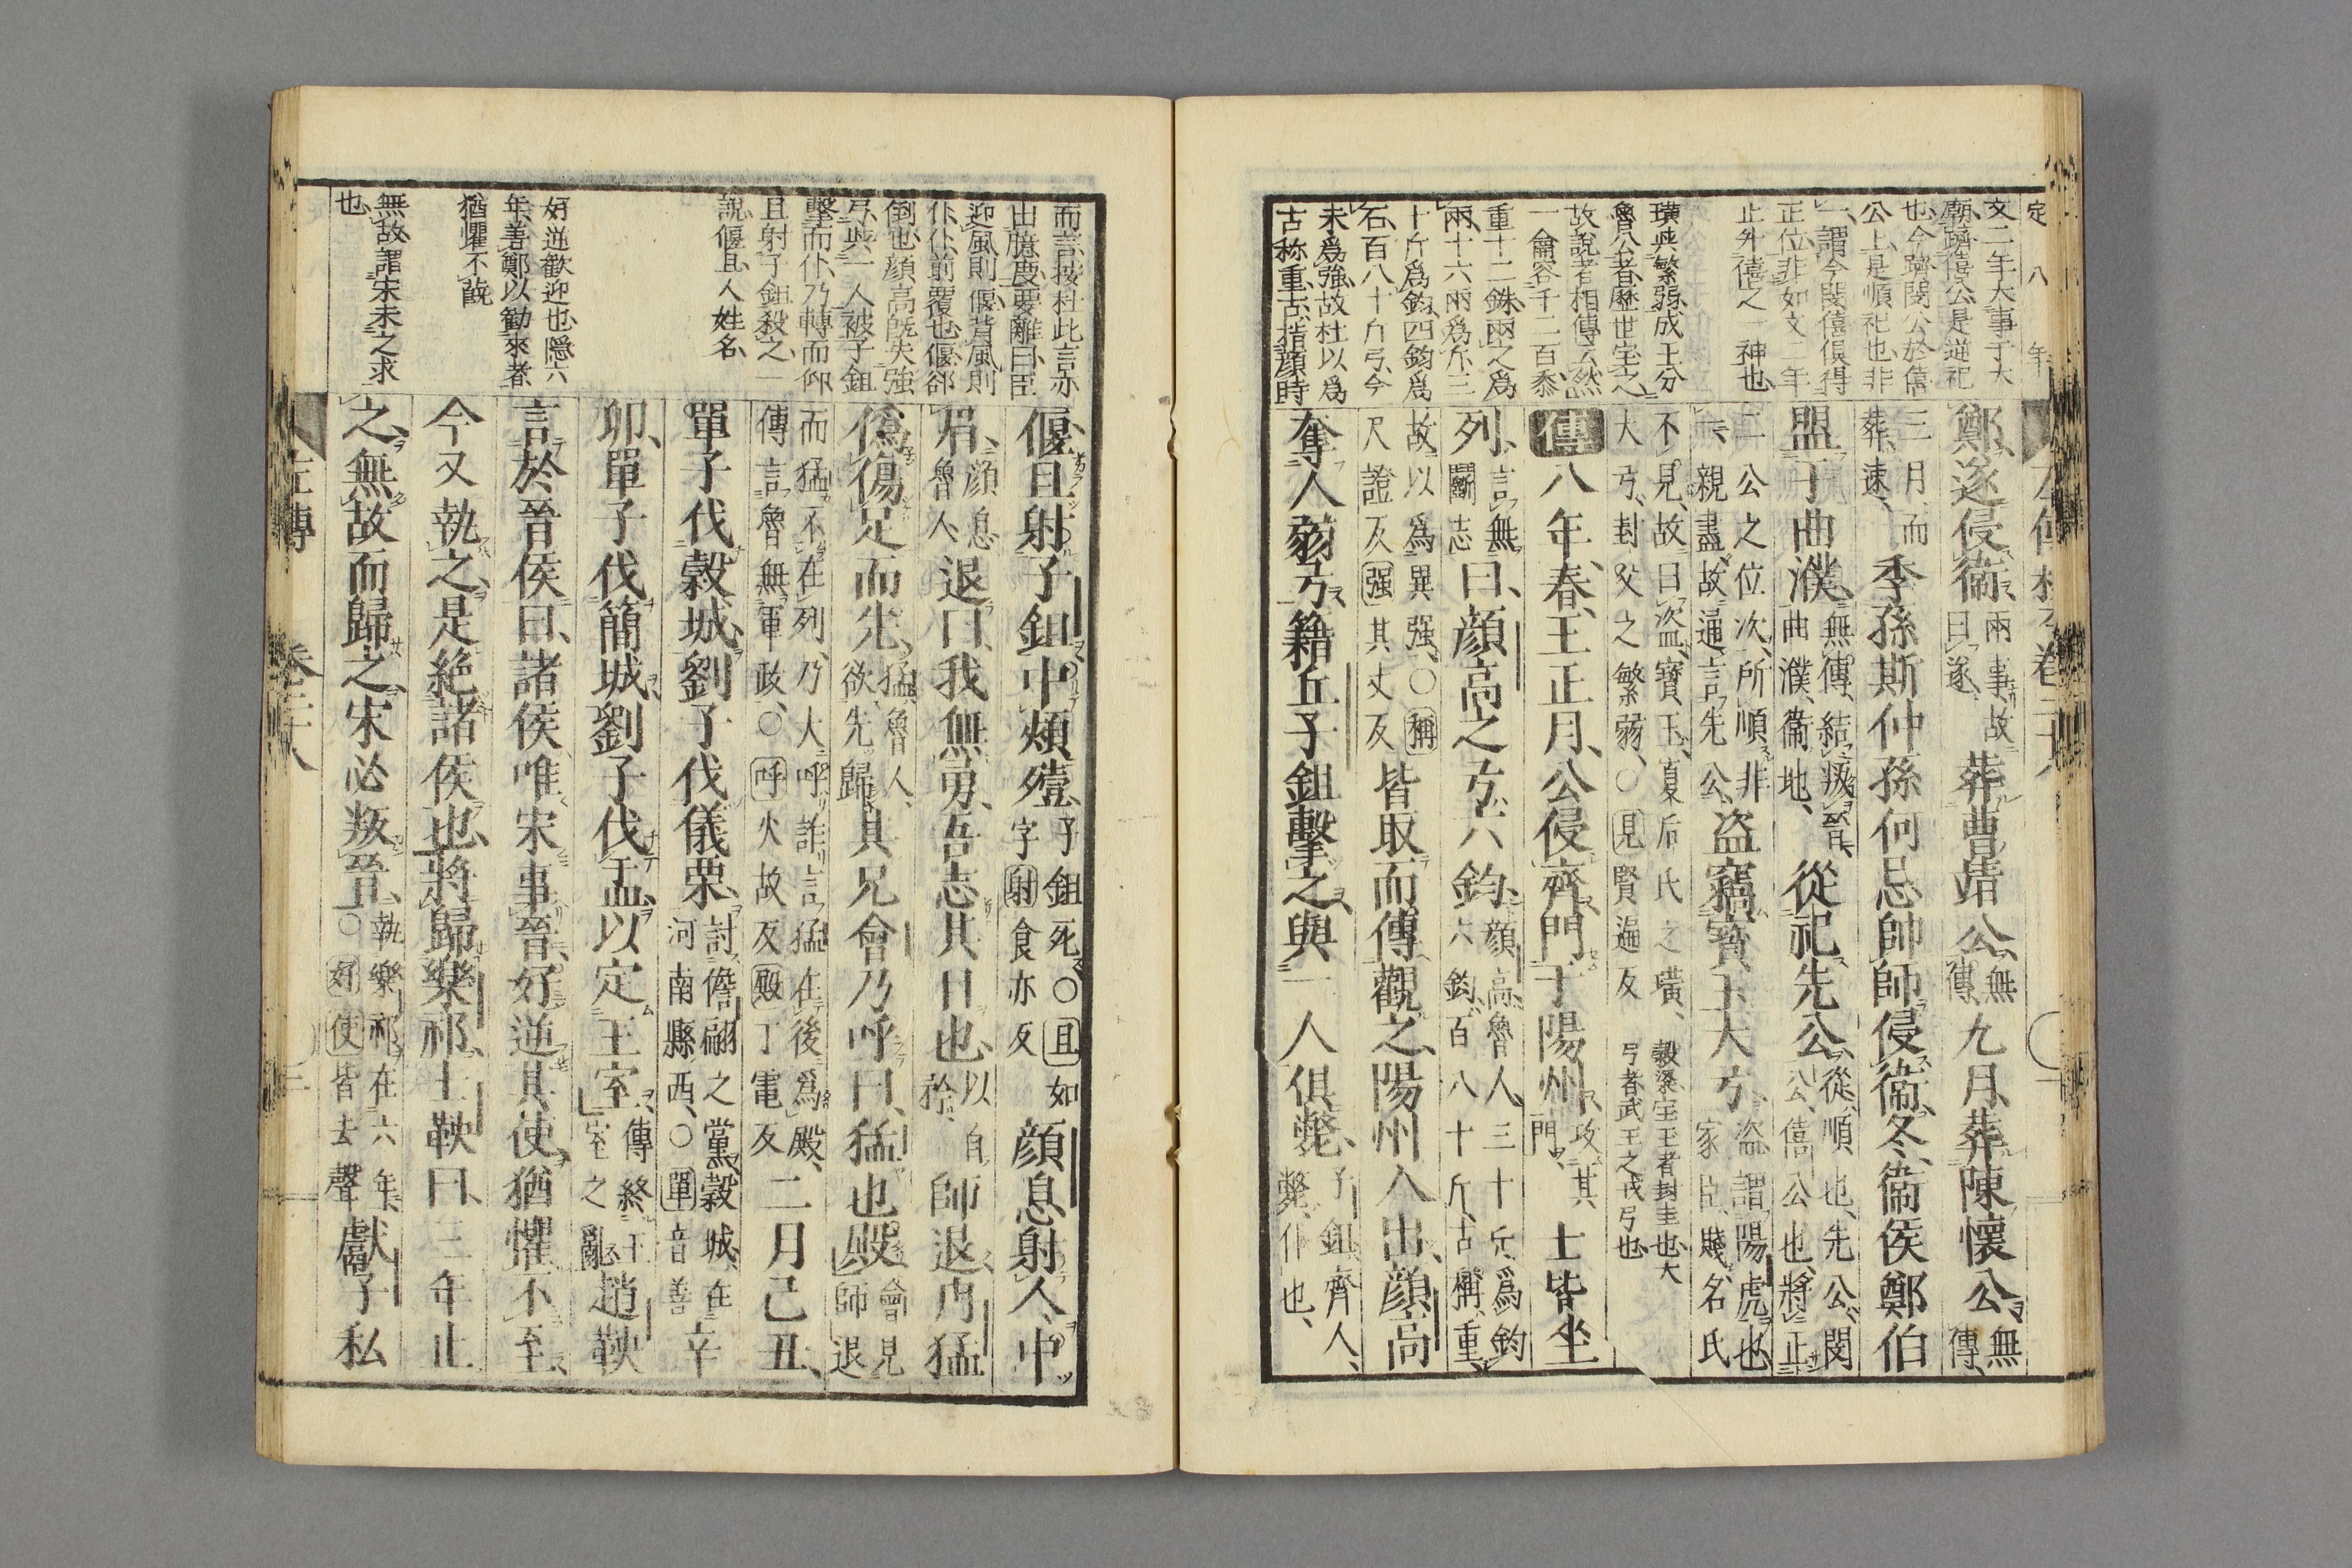 定八年
文二年大事于大
廟躋僖公是逆祀
也今躋閔公於僖
公上是順祀也非
一謂今閔僖俱得
正位非如文二年
止升僖之一神也
璜與繁弱成王分
魯公者歷世宝之
故說者相傳云然
一龠容千二百黍
重十二銖兩之爲
兩十六兩爲斤三
十斤爲鈞四鈞爲
石百八十斤弓今
未爲強故杜以爲
古称重古指顔時
鄭遂侵衞兩事故曰遂葬曹靖公無傳九月葬陳懷公無傳
三月而葬速季孫斯仲孫何忌帥師侵衞冬衞侯鄭伯
盟于曲濮無傳結叛晉曲濮衞地從祀先公從順也先公閔公僖公也將正
二公之位次所順非一親盡故通言先公盜竊寶玉大弓盜謂陽虎也家臣賤名氏
不見故曰盜寶玉夏后氏之璜大弓封父之繁弱○見賢遍反
穀梁宝玉者封圭也大弓者武王之戎弓也
傳八年春王正月公侵齊門于陽州攻其門士皆坐
列言無鬭志曰顔高之弓六鈞顔高魯人三十斤爲鈞六鈞百八十斤古稱重
故以爲異強○稱尺證反强其丈反皆取而傳觀之陽州人出顔高
奪人弱弓籍丘子鉏擊之與一人俱斃子鉏齊人斃仆也
而言按杜此言亦
出臆度要離曰臣
迎風則偃背風則
仆仆前覆也偃郤
倒也顔高旣失強
弓與一人被子鉏
擊而仆乃轉而仰
且射子鉏殺之一
說偃且人姓名
好逆歡迎也隱六
年善鄭以勸來者
猶懼不蔇
無故謂宋未之求
也
偃且射子鉏中頬殪子鉏死○且如字射食亦反顔息射人中
眉顔息魯人退曰我無勇吾志其目也以自矜師退冉猛
僞傷足而先猛魯人欲先歸其兄會乃呼曰猛也殿會見師退
而猛不在列乃大呼詐言猛在後爲殿傳言魯無軍政○呼火故反殿丁電反二月己丑
單子伐穀城劉子伐儀栗討儋翩之黨穀城在河南縣西○單音善辛
卯單子伐簡城劉子伐盂以定王室傳終王室之亂趙鞅
言於晉侯曰諸侯唯宋事晉好逆其使猶懼不至
今又執之是絶諸侯也將歸樂祁士鞅曰三年止
之無故而歸之宋必叛晉執樂祁在六年○好使皆去聲獻子私
左傳 卷二十八